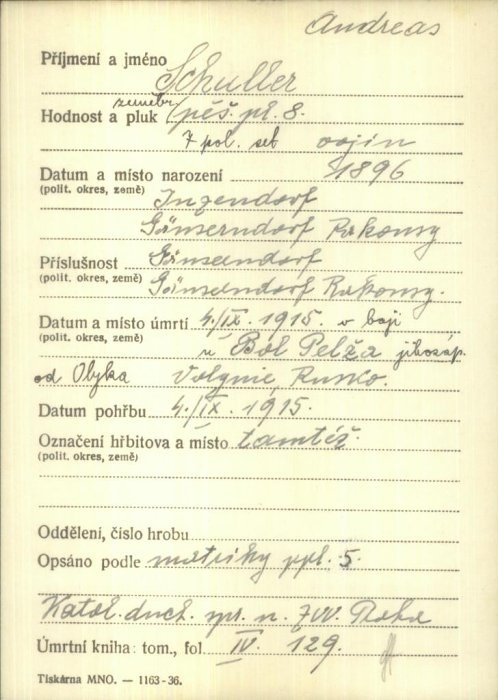 Andreas
Příjmení a jméno Schuller
zeměbr.
Hodnost a pluk pěš. pl. 8.
7 pol. set vojín
Datum a místo narození 1896
(polit. okres, země) Ingendorf
Gänserndorf Rakousy
Příslušnost Gänserndorf
(polit. okres, země) Gänserndorf Rakousy.
Datum a místo úmrtí 4./IX. 1915. v boji
(polit. okres, země) u Bol Pelža jihozáp.
od Olyka Volynie, Rusko.
Datum pohřbu 4./IX. 1915.
Označení hřbitova a místo tamtéž.
(polit. okres, země)
Oddělení, číslo hrobu
Opsáno podle matriky ppl. 5.
Katol. duch. spr. n. ZVV. Praha
Úmrtní kniha: tom., fol. IV. 129.
Tiskárna MNO. — 1163-36.